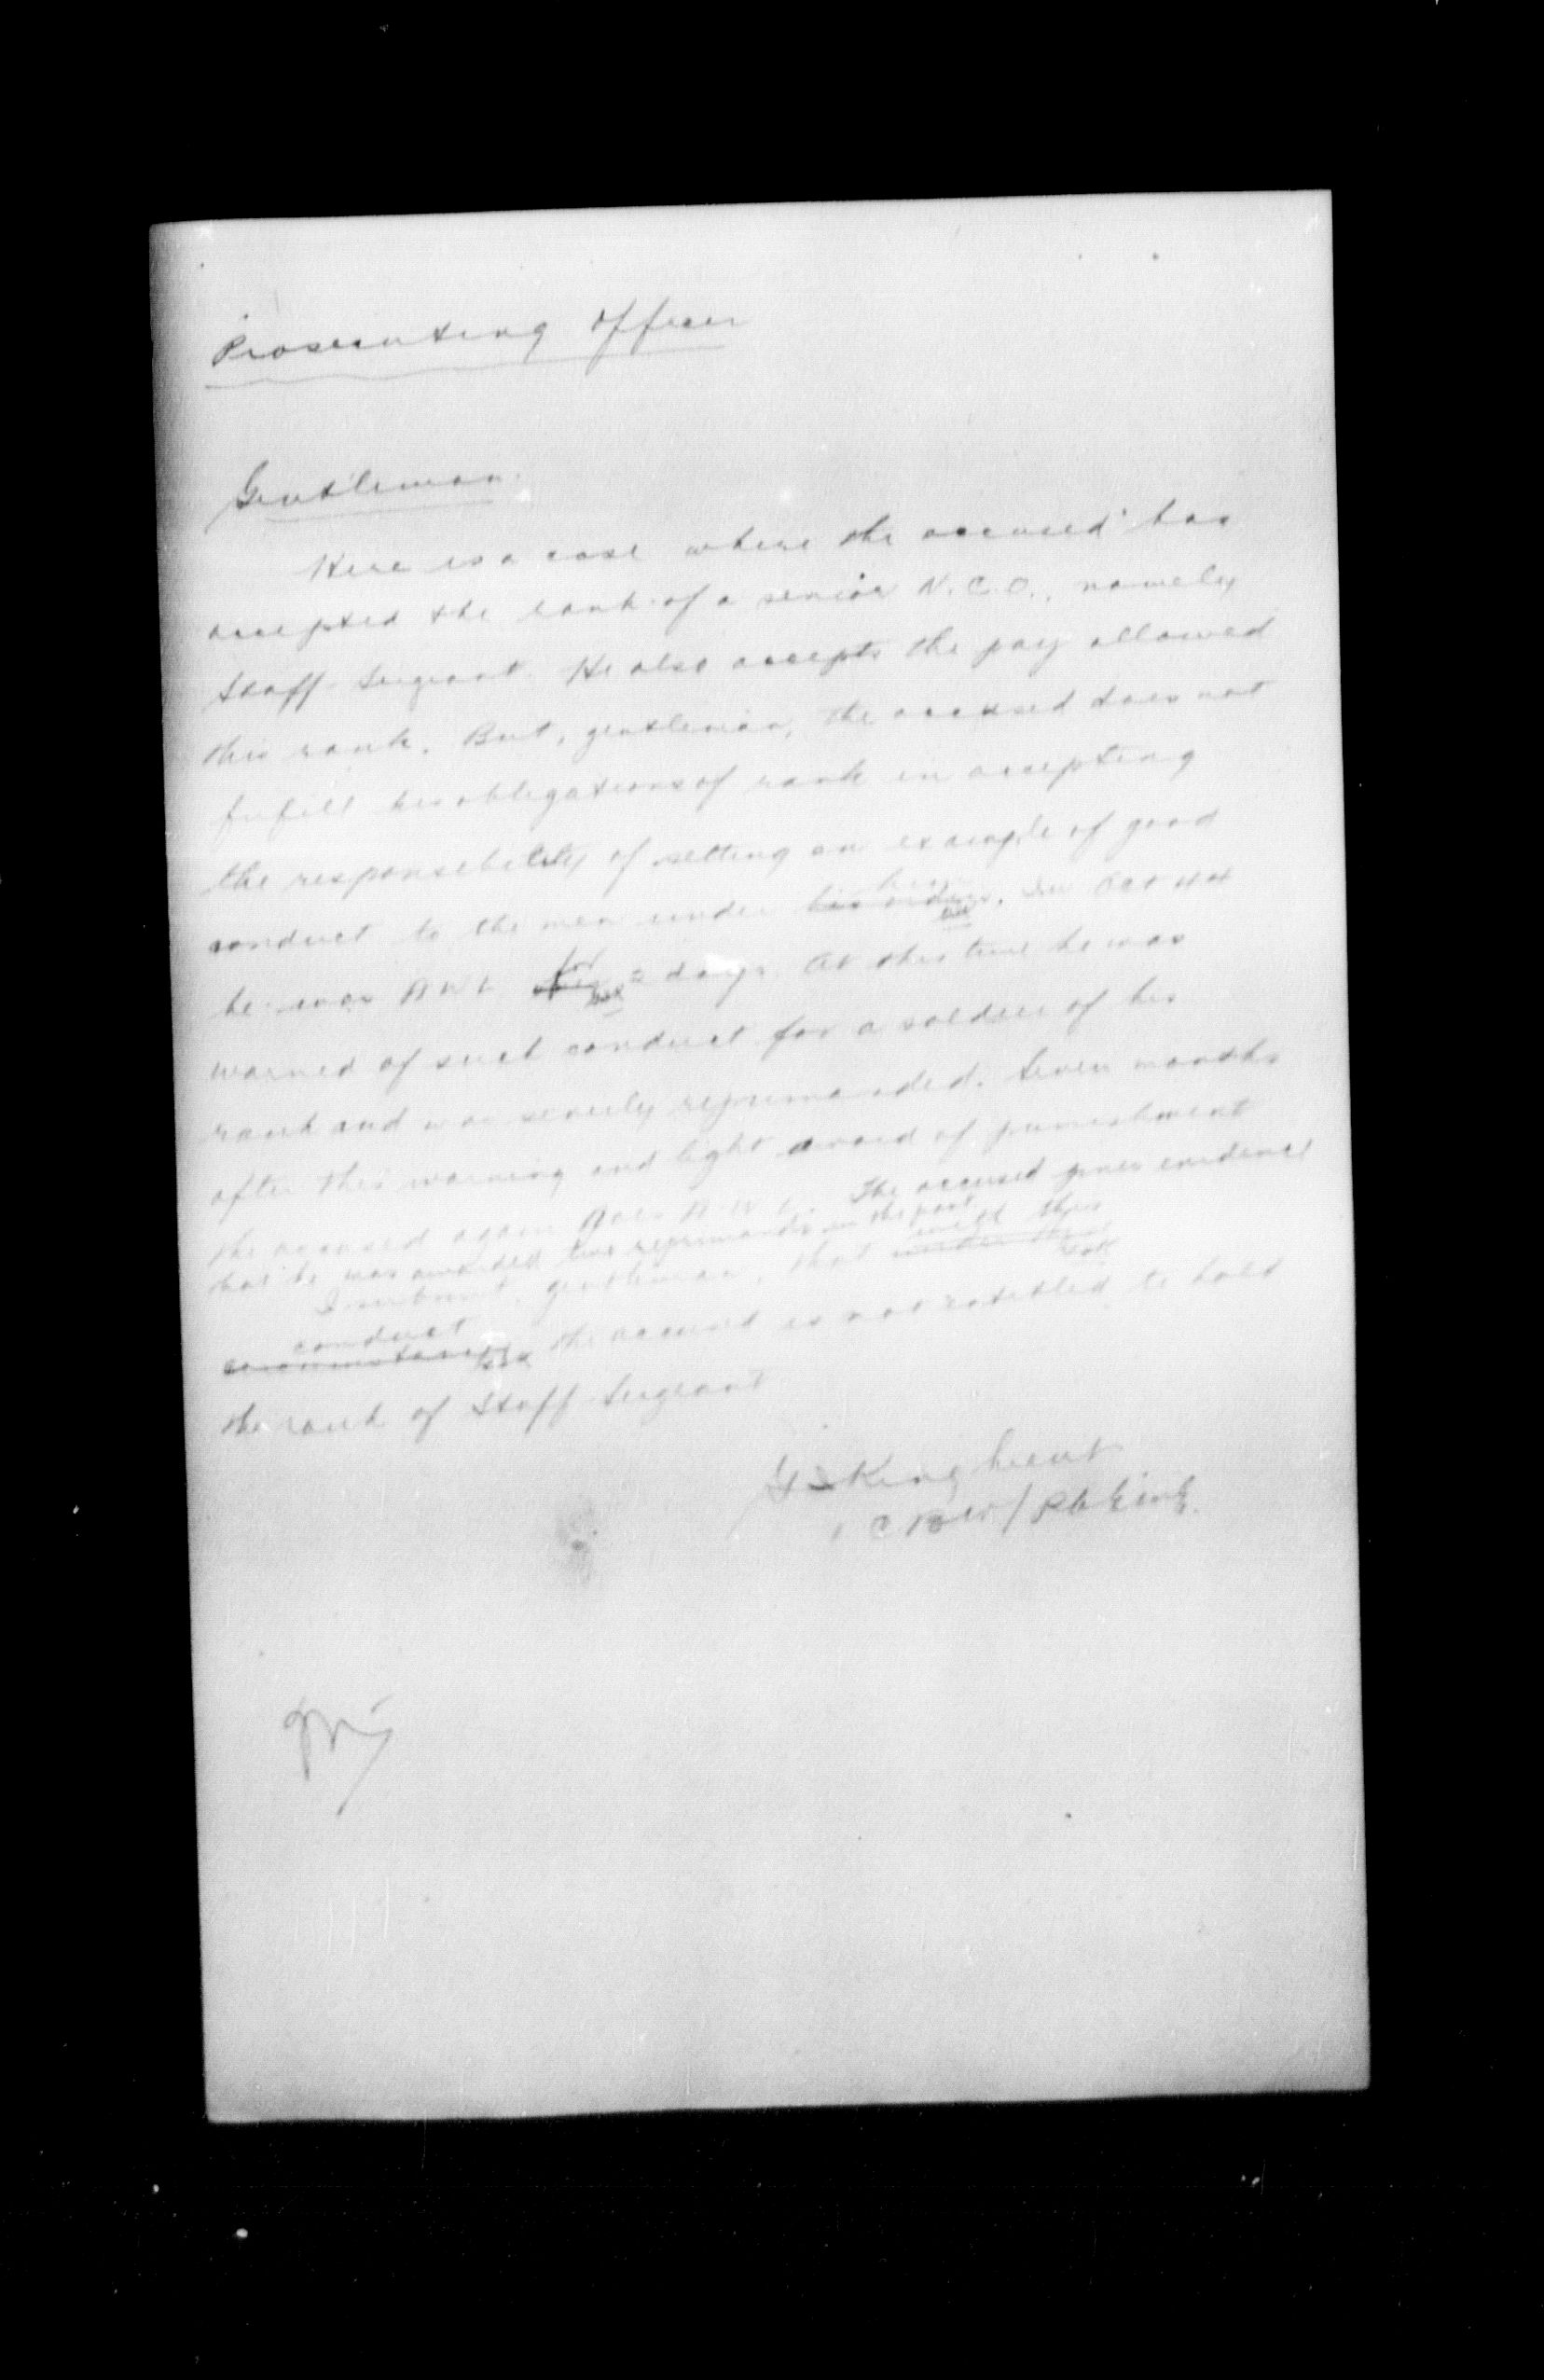 Prosecuting Officer
Gentleman.
Here is a case where the accused has
accepted the rank of a senior N.C.O., namely
Staff Sergeant. He also accepts the pay allowed
this rank. But, gentleman, the accused does not
fufill his obligations of rank in accepting
the responsibility of setting an example of good
conduct to the men under his orders him. In Oct 44
he was AWL for days. At this time he was
warned of such conduct for a soldier of his
rank and was severly reprimanded. Seven months
after this warning and light award of punishment
the accused again goes A.W.L. The accused gives evidence
that he was awarded two reprimands in the past
I submit, gentleman, that under these with this
circumstances conduct the accused is not entitled to hold
the rank of Staff Sergeant
King Lieut